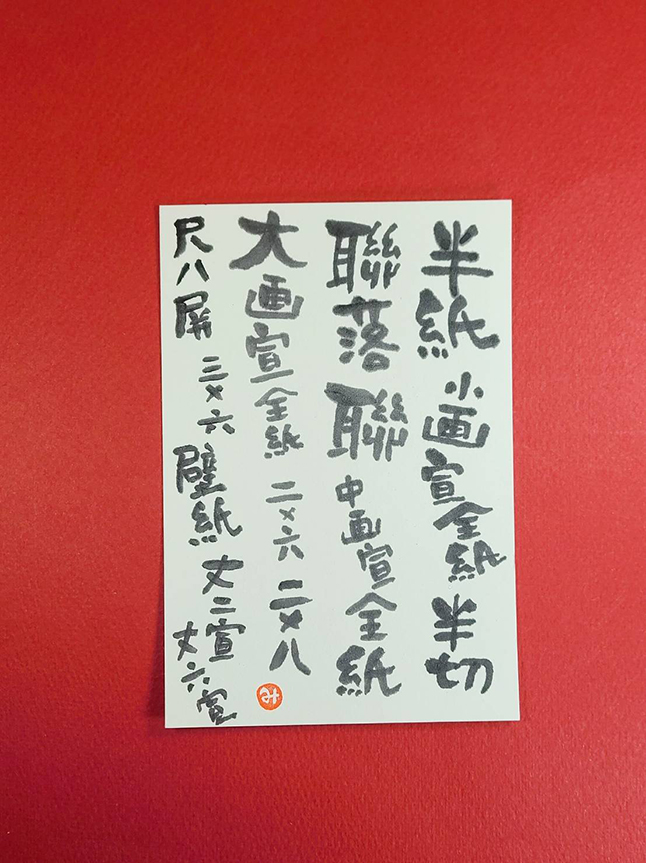 半紙 小画宣全紙 半切
聯落 聯 中画宣全紙
大画宣全紙 二×六 二×八
尺八屏 三×六 壁紙 丈二宣 丈六宣